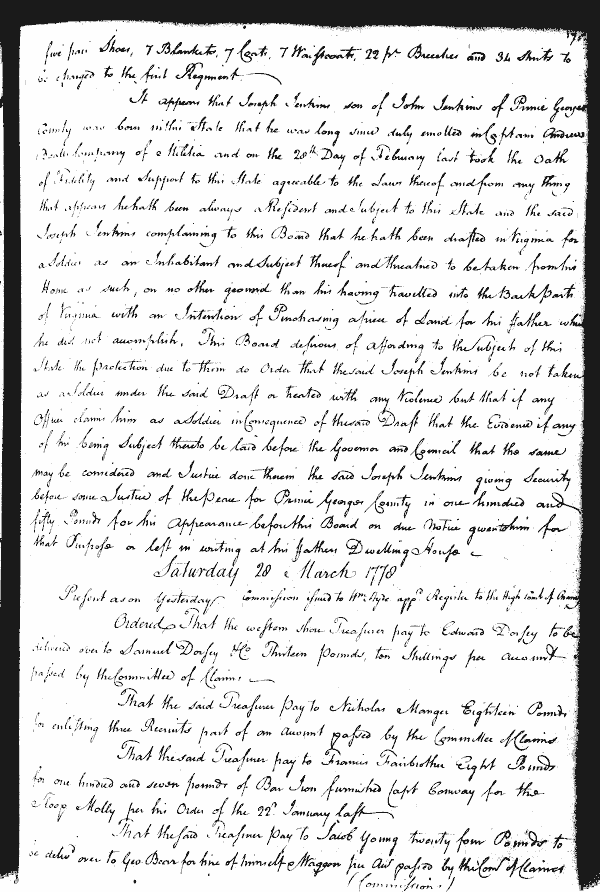 five pair Shoes, 7 Blankets, 7 Coats, 7 Waistcoats, 22 pr Breeches and 34 Shirts to
be charged to the first Regiment
It appears that Joseph Jenkins son of John Jenkins of Prince Georges
County was born within State that he was long since duly enrolled in Captain Andrew
Bealls Company of Militia and on the 28th Day of February last took the Oath
of Fidelity and Support to this State agreeable to the Laws thereof and from any thing
that appears he hath been always a Resident and Subject to this State and the said
Joseph Jenkins complaining to this Board that he hath been drafted in Virginia for
a Soldier as an Inhabitant and Subject thereof and threatned to be taken from his
Home as such, on no other ground than his having travelled into the Back Parts
of Virginia with an Intention of Purchasing a piece of Land for his Father which
he did not accomplish. This Board desirous of affording to the Subjects of this
State the protection due to them do Order that the said Joseph Jenkins be not taken
as a Soldier under the said Draft or treated with any Violence but that if any
Officer claims him as a Soldier in Consequence of the said Draft that the Evidence if any
of his being Subject thereto be laid before the Governor and Council that the same
may be considered and Justice done therein the said Joseph Jenkins giving Security
before some Justice of the Peace for Prince Georges County in one hundred and
fifty Pounds for his Appearance before this Board on due Notice given to him for
that Purpose or left in writing at his Fathers Dwelling House
Saturday 28 March 1778
Present as on Yesterday Commission issued to Wm Hyde appd Register to the High Court of
Ordered That the western Shore Treasurer pay to Edward Dorsey to be
delivered over to Samuel Dorsey & Co Thirteen Pounds, ten Shillings per Account
passed by the Committee of Claims
That the said Treasurer pay to Nicholas Manger Eighteen Pounds
for enlisting three Recruits part of an Account passed by the Committee of Claims
That the said Treasurer pay to Francis Fairbrother Eight Pounds
for one hundred and seven pounds of Bar Iron furnished Capt Conway for the
Sloop Molly per his Order of the 22d January last
That the said Treasurer pay to Jacob Young twenty four Pounds to
be delivd over to Geo Bear for hire of himself & Waggon per Acct passed by the Com of Claims
(Commission